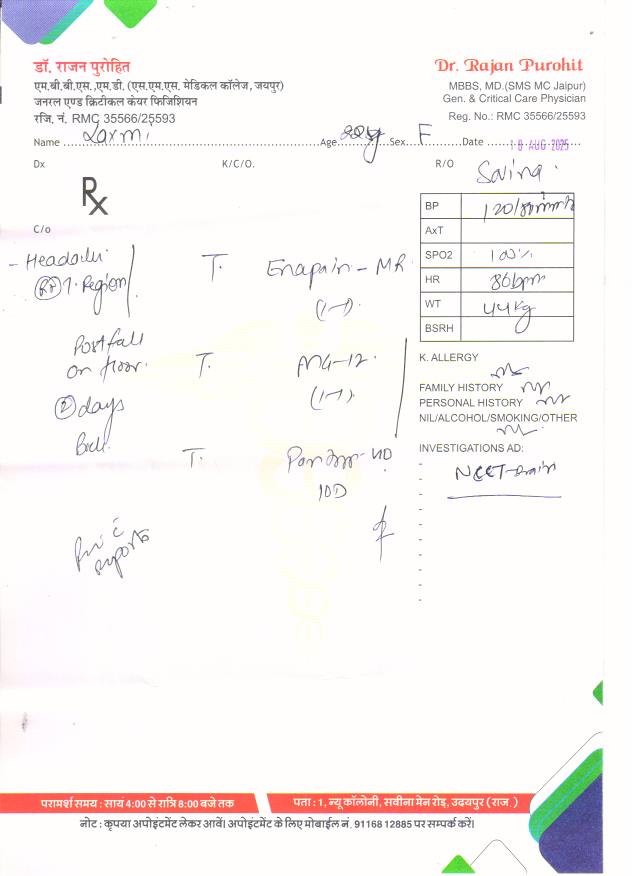 डॉ. राजन पुरोहित
एम.बी.बी.एस.,एम.डी. (एस.एम.एस. मेडिकल कॉलेज, जयपुर)
जनरल एण्ड क्रिटीकल केयर फिजिशियन
रजि. नं. RMC 35566/25593
Dr. Rajan Purohit
MBBS, MD.(SMS MC Jaipur)
Gen. & Critical Care Physician
Reg. No.: RMC 35566/25593
Name Laxmi Age 22y Sex F Date 18 AUG 2025
Dx K/C/O. R/O Savina
Rx
BP 120/80
AxT
SPO2 100%
HR 86bpm
WT 44kg
BSRH
C/o
- Headache
(Rt) T. Region
Post fall
on floor.
(2) days
Back
T. Enapain - MR
(1-1)
T.
(1-1)
T.
10D
K. ALLERGY
FAMILY HISTORY
PERSONAL HISTORY
NIL/ALCOHOL/SMOKING/OTHER
INVESTIGATIONS AD:
NCCT-Brain
reports
परामर्श समय : सायं 4:00 से रात्रि 8:00 बजे तक
पता : 1, न्यू कॉलोनी, सवीना मेन रोड़, उदयपुर (राज.)
नोट : कृपया अपोइंटमेंट लेकर आवें। अपोइंटमेंट के लिए मोबाईल नं. 91168 12885 पर सम्पर्क करें।